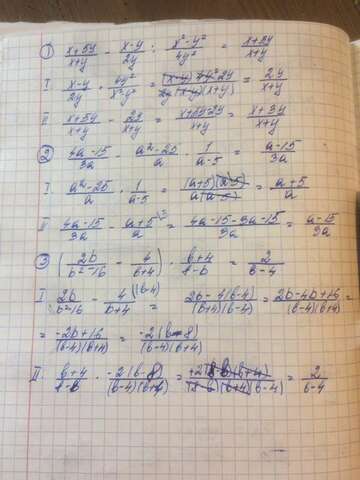 ① (x+5y)/(x+y) - (x-y)/(2y) : (x²-y²)/(4y²) = (x+3y)/(x+y)
I (x-y)/(2y) · 4y²/(x²-y²) = ((x-y) 4y² 2y)/(2y(x-y)(x+y)) = 2y/(x+y)
II (x+5y)/(x+y) - 2y/(x+y) = (x+5y-2y)/(x+y) = (x+3y)/(x+y)
② (4a-15)/(3a) - (a²-25)/a · 1/(a-5) = (a-15)/(3a)
I (a²-25)/a · 1/(a-5) = ((a+5)(a-5))/(a(a-5)) = (a+5)/a
II (4a-15)/(3a) - (a+5)/a \3 = (4a-15-3a-15)/(3a) = (a-15)/(3a)
③ (2b/(b²-16) - 4/(b+4)) · (b+4)/(8-b) = 2/(b-4)
I 2b/(b²-16) - 4/(b+4) \(b-4) = (2b-4(b-4))/((b+4)(b-4)) = (2b-4b+16)/((b-4)(b+4)) =
= (-2b+16)/((b-4)(b+4)) = (-2(b-8))/((b-4)(b+4))
II (b+4)/(8-b) · (-2(b-8))/((b-4)(b+4)) = (+2(8-b)(b+4))/((8-b)(b+4)(b-4)) = 2/(b-4)